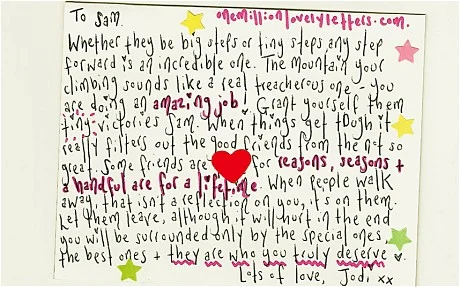 To Sam.
onemillionlovelyletters.com.
Whether they be big steps or tiny steps any step
forward is an incredible one. The mountain your
climbing sounds like a real treacherous one - you
are doing an amazing job! Grant yourself them
tiny victories Sam. When things get tough it
really filters out the good friends from the not so
great. Some friends are for reasons, seasons +
a handful are for a lifetime. When people walk
away, that isn't a reflection on you, it's on them.
Let them leave, although it will hurt in the end
you will be surrounded only by the special ones,
the best ones + they are who you truly deserve.
Lots of love, Jodi xx